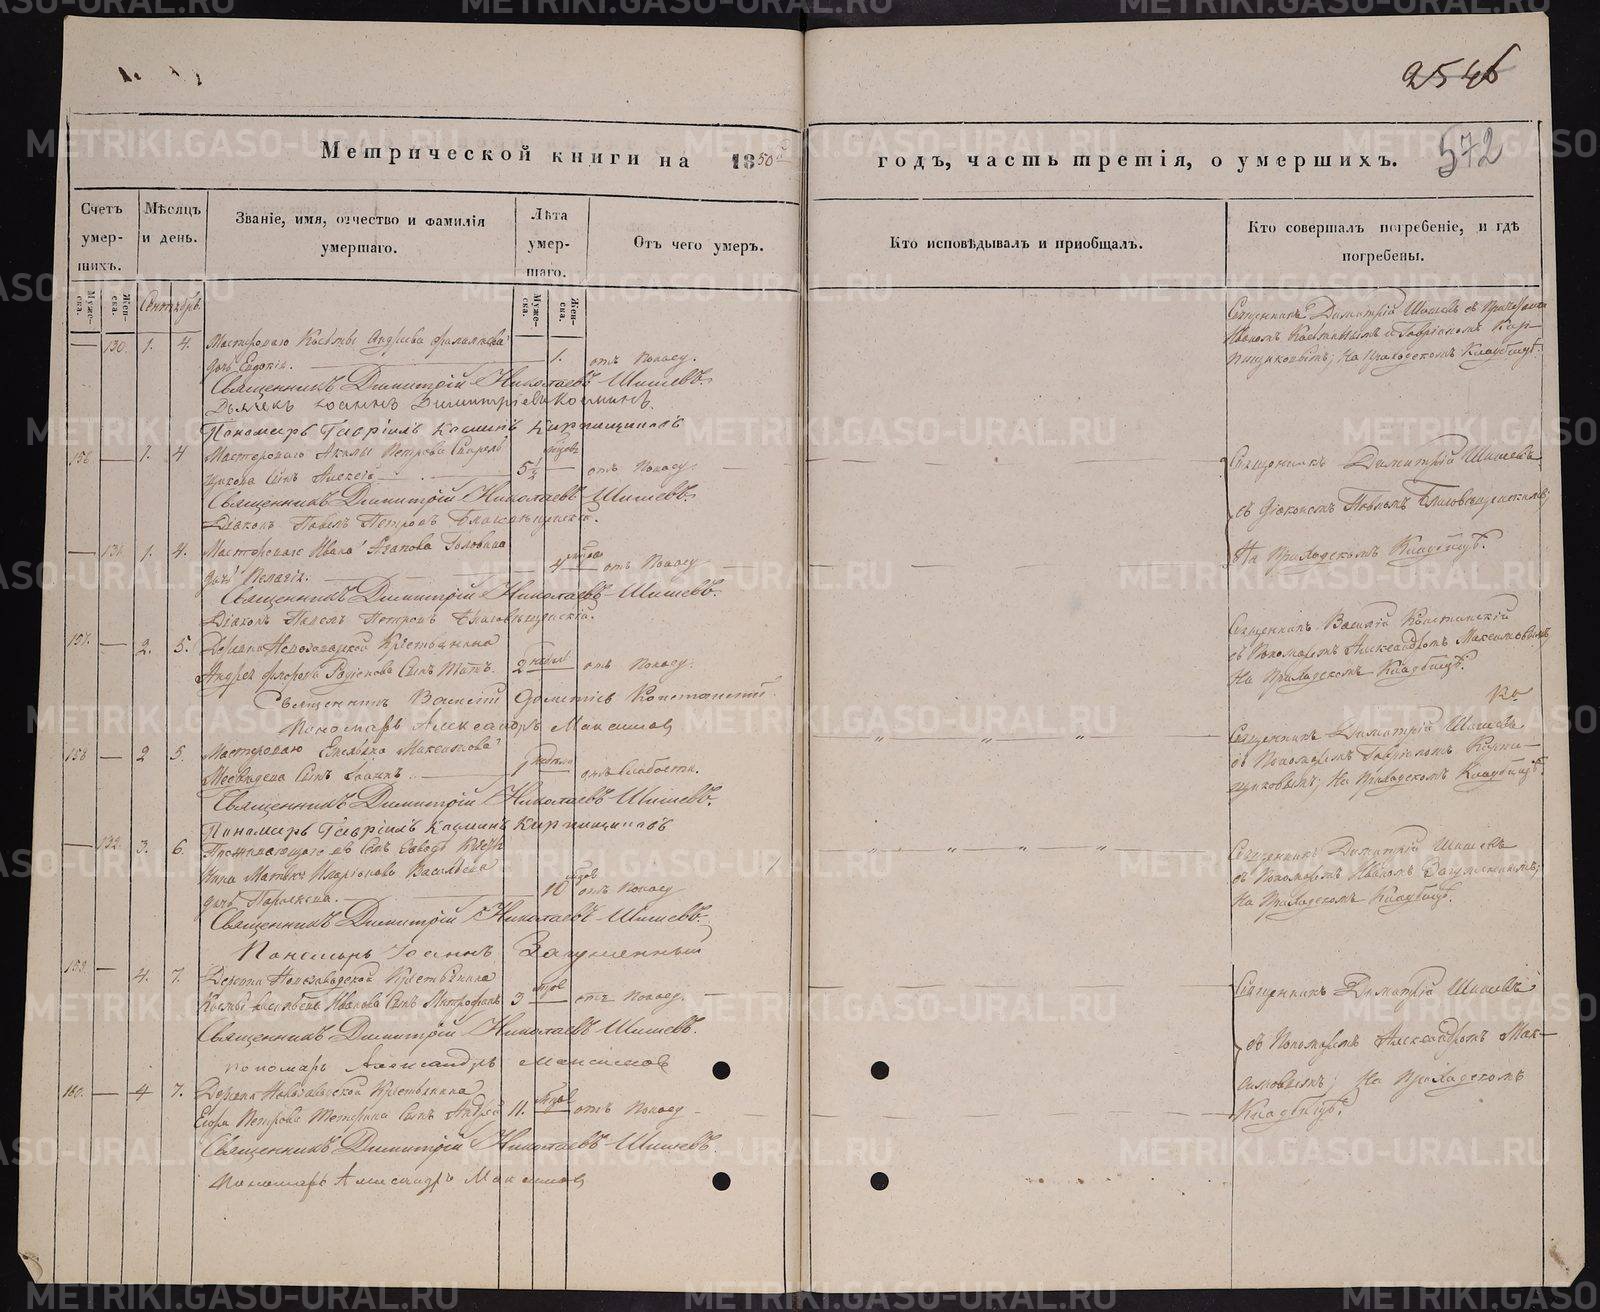 2546
572
Метрической книги на 1850й годъ, часть третія, о умершихъ.
Счетъ умер-
шихъ.
Мѣсяцъ
и день.
Званіе, имя, отчество и фамилія
умершаго.
Лѣта
умер-
шаго.
Отъ чего умеръ.
Кто исповѣдывалъ и пріобщалъ.
Кто совершалъ погребеніе, и гдѣ
погребены.
Муже-
ска.
Жен-
ска.
Сентябрь.
Муже-
ска.
Жен-
ска.
130. 1. 4. Мастероваго Космы Андреева
дочь Евдокія. 1. отъ поносу.
Священникъ Димитрій Николаевъ Шишевъ.
Дьячекъ Іоаннъ Димитріевъ Косминъ.
Пономарь Гавріилъ Косминъ Кирпищиковъ
Священникъ Димитрій Шишевъ съ Причетники
на Приходскомъ Кладбищѣ.
156 1. 4 Мастероваго Петрова
сынъ Алексѣй 5½ отъ поносу.
Священникъ Димитрій Николаевъ Шишевъ.
Діаконъ Павелъ Петровъ Благовѣщенскій.
Священникъ Димитрій Шишевъ
съ Діакономъ Павломъ Благовѣщенскимъ;
На Приходскомъ Кладбищѣ.
131. 1. 4. Мастероваго Ивана Агапова Головина
дочь Пелагія. 4 отъ поносу
Священникъ Димитрій Николаевъ Шишевъ.
Діаконъ Павелъ Петровъ Благовѣщенскій.
157. 2. 5. Деревни Новозаводской Крестьянина
Андрея сынъ Титъ. 2 недѣли отъ поносу.
Священникъ Василій Константскій
Пономарь Александръ Максимовъ
Священникъ Василій
съ Пономаремъ Александромъ Максимовымъ,
На Приходскомъ Кладбищѣ.
158 2 5. Мастероваго Максимова
сынъ Іоаннъ. недѣли отъ слабости.
Священникъ Димитрій Николаевъ Шишевъ.
Пономарь Гавріилъ Косминъ Кирпищиковъ
Священникъ Димитрій Шишевъ
съ Пономаремъ Гавріиломъ Кирпи-
щиковымъ; На Приходскомъ Кладбищѣ.
132. 3. 6. Проживающаго въ семъ заводѣ Крестья-
нина Иларіонова Васильева
дочь Параскева. 10 отъ поносу
Священникъ Димитрій Николаевъ Шишевъ
Пономарь Іоаннъ Загуменный
Священникъ Димитрій Шишевъ
съ Пономаремъ Иваномъ Загуменнымъ;
На Приходскомъ Кладбищѣ.
159 4. 7. Деревни Новозаводской Крестьянина
Иванова сынъ Митрофанъ 3 отъ поносу.
Священникъ Димитрій Николаевъ Шишевъ.
пономарь Александръ Максимовъ
Священникъ Димитрій Шишевъ
съ Пономаремъ Александромъ Мак-
симовымъ; На Приходскомъ
Кладбищѣ.
160. 4 7. Деревни Новозаводской Крестьянина
Егора Петрова сынъ Андрей 11. отъ поносу
Священникъ Димитрій Николаевъ Шишевъ.
Пономарь Александръ Максимовъ
METRIKI.GASO-URAL.RU